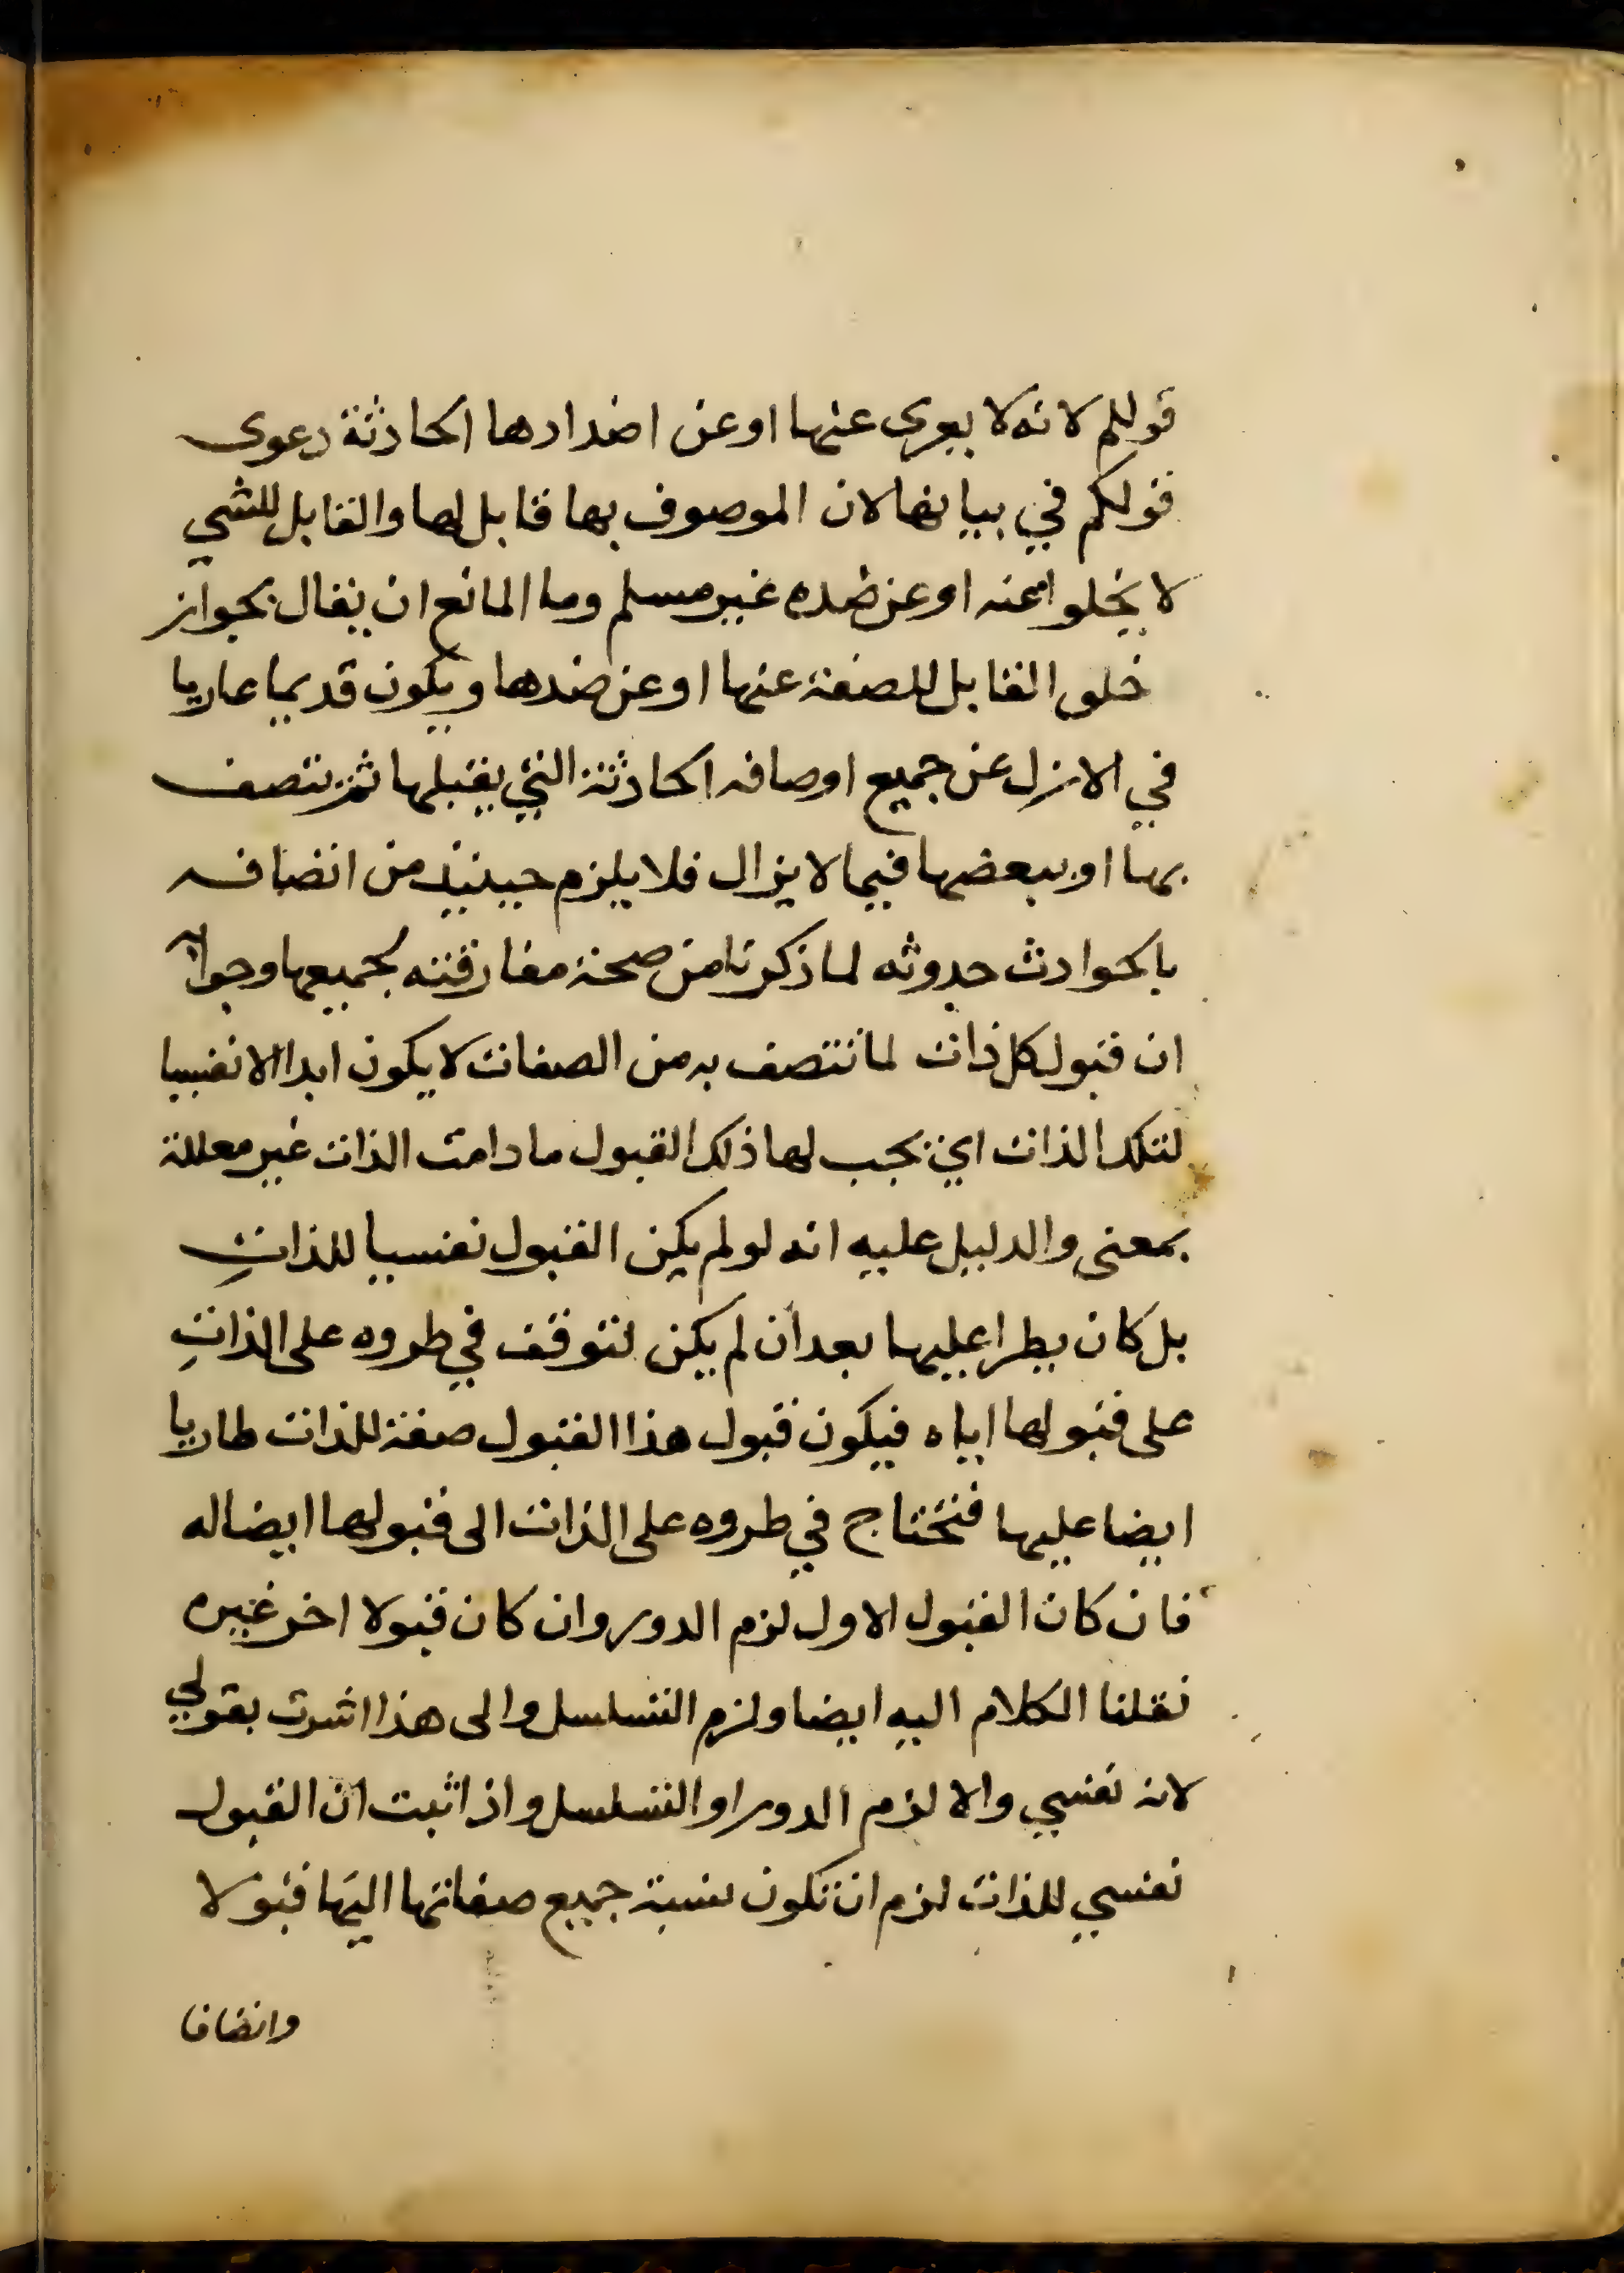 قولكم لانه لا يعرى عنها او عن اضدادها الحادثة دعوى
قولكم في بيانها لان الموصوف بها قابل لها والقابل للشي
لا يخلوا عنه او عن ضده غير مسلم وما المانع ان يقال بجواز
خلو القابل للصفة عنها او عن ضدها ويكون قديما عاريا
في الازل عن جميع اوصافه الحادثة التي يقبلها ثم يتصف
بها او ببعضها فيما لا يزال فلا يلزم حينيذ من اتصافه
بالحوادث حدوثه لما ذكرنا من صحة مفارقته لجميعها وجوابه
ان قبول كل ذات لما تتصف به من الصفات لا يكون ابدا الا نفسيا
لتلك الذات اي يجب لها ذلك القبول ما دامت الذات غير معللة
بمعنى والدليل عليه انه لو لم يكن القبول نفسيا للذات
بل كان يطرا عليها بعد ان لم يكن لتوقف في طروه على الذات
على قبولها اياه فيكون قبول هذا القبول صفة للذات طاريا
ايضا عليها فتحتاج في طروه على الذات الى قبولها ايضا له
فان كان القبول الاول لزم الدور وان كان قبولا اخر غيره
نقلنا الكلام اليه ايضا ولزم التسلسل والى هذا اشرت بقولي
لانه نفسي والا لزم الدور او التسلسل واذا ثبت ان القبول
نفسي للذات لزم ان تكون نسبة جميع صفاتها اليها قبولا
واتصافا